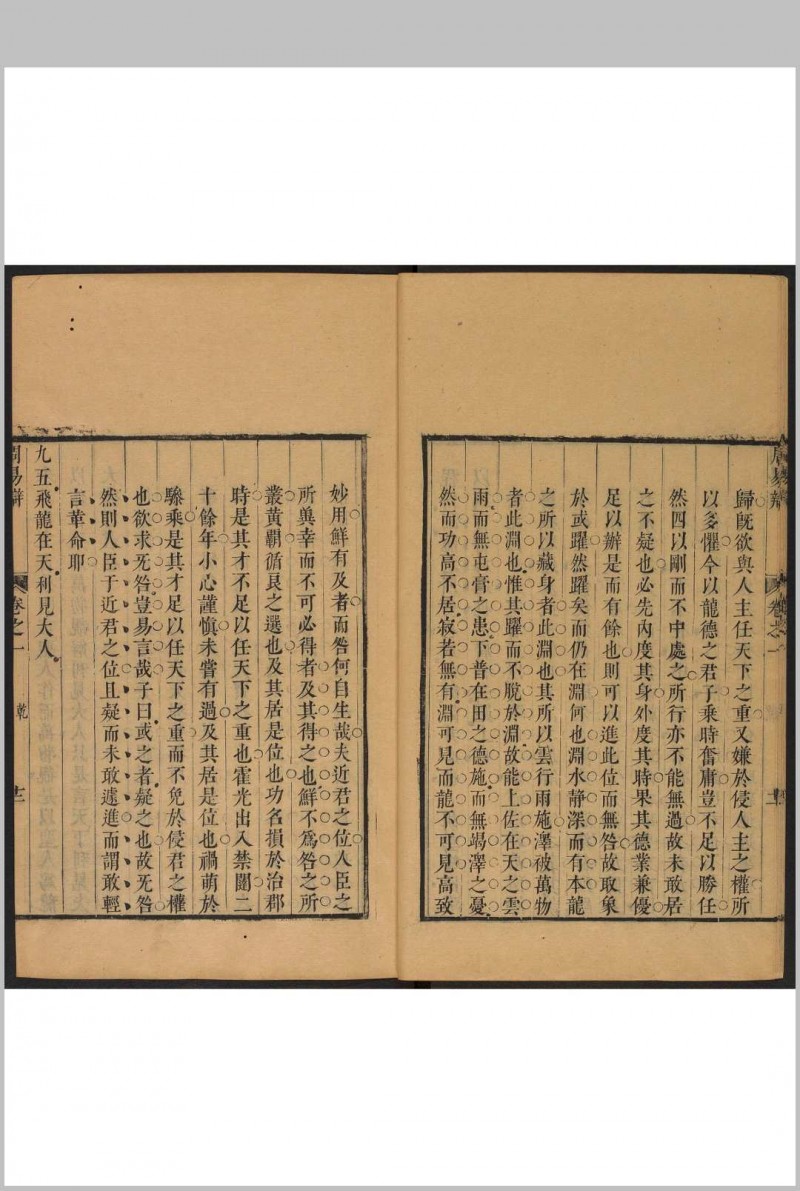 周易辯 卷之一 十一
歸既欲與人主任天下之重又嫌於侵人主之權所
以多懼今以龍德之君子乘時奮庸豈不足以勝任
然四以剛而不中處之所行亦不能無過故未敢居
之不疑也必先內度其身外度其時果其德業兼優
足以辦是而有餘也則可以進此位而無咎故取象
於或躍然躍矣而仍在淵何也淵水靜深而有本龍
之所以藏身者此淵也其所以雲行雨施澤被萬物
者此淵也惟其躍而不脫於淵故能上佐在天之雲
雨而無屯膏之患下普在田之德施而無竭澤之憂
然而功高不居寂若無有淵可見而龍不可見高致
妙用鮮有及者而咎何自生哉夫近君之位人臣之
所兾幸而不可必得者及其得之也鮮不爲咎之所
叢黃霸循良之選也及其居是位也功名損於治郡
時是其才不足以任天下之重也霍光出入禁闥二
十餘年小心謹愼未嘗有過及其居是位也禍萌於
驂乘是其才足以任天下之重而不免於侵君之權
也欲求无咎豈易言哉子曰或之者疑之也故无咎
然則人臣于近君之位且疑而未敢遽進而謂敢輕
言革命耶
九五飛龍在天利見大人
周易辯 卷之一 乾 十二